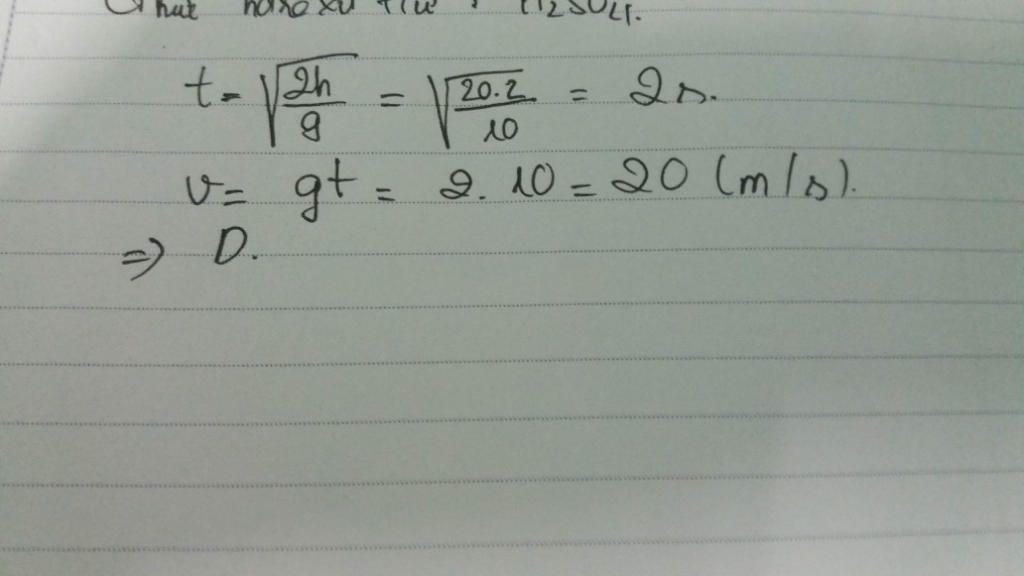 H2SO4.
t = √(2h/g) = √(20.2/10) = 2s.
v = gt = 2.10 = 20 (m/s).
=> D.